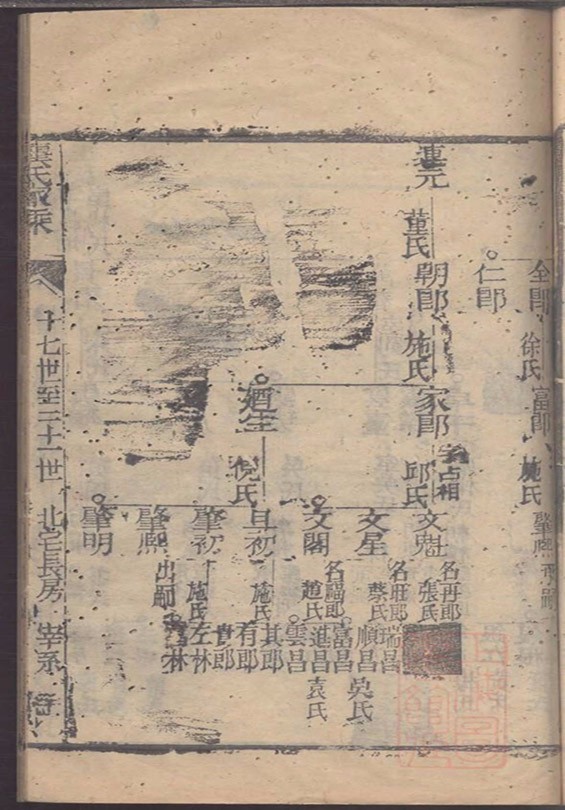 全郎 徐氏 富郎 施氏
仁郎
連元 董氏 朝郎 施氏 家郎 字占相 邱氏 文魁 名再郎 張氏
文星 名旺郎 蔡氏 瑞昌
順昌 吳氏
文閣 名福郎 趙氏 富昌
進昌 袁氏
雲昌
廼生 倪氏 旦初 施氏 其郎
有郎
肇初 施氏 左林
林
肇熙 出嗣
肇明
十七世至二十一世 北宅長房 宰系